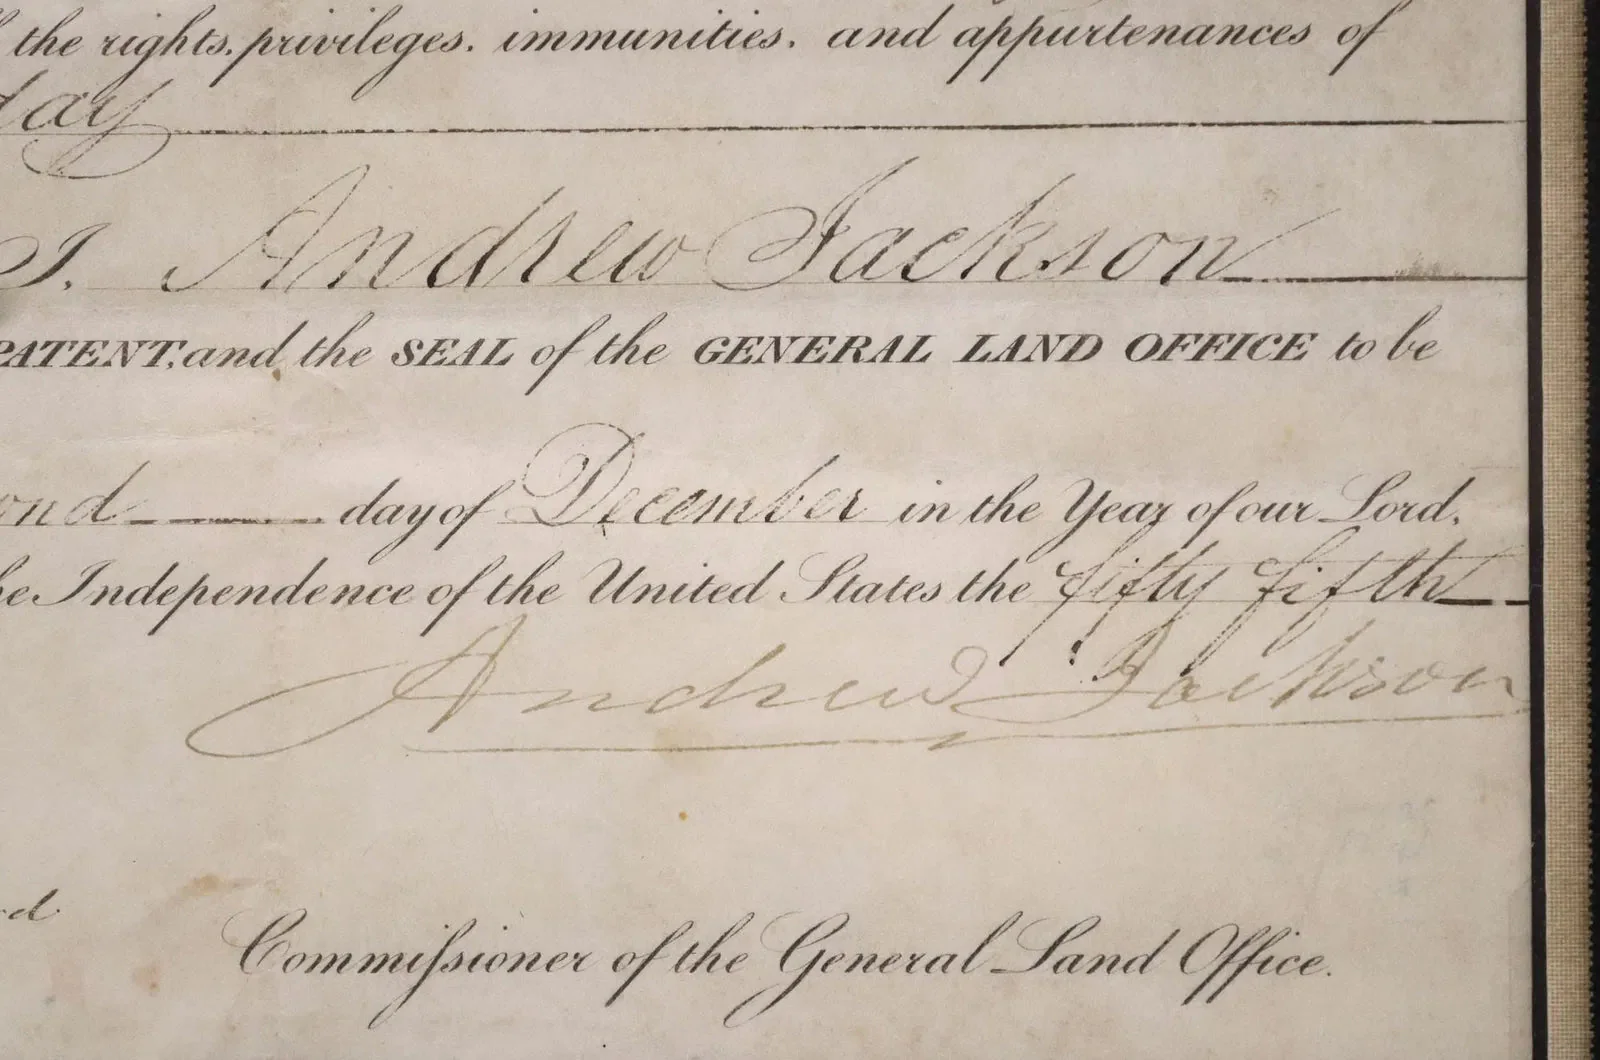 the rights, privileges, immunities, and appurtenances of
day
I. Andrew Jackson
PATENT, and the SEAL of the GENERAL LAND OFFICE to be
ond day of December in the Year of our Lord,
he Independence of the United States the fifty fifth
Andrew Jackson
Commissioner of the General Land Office.